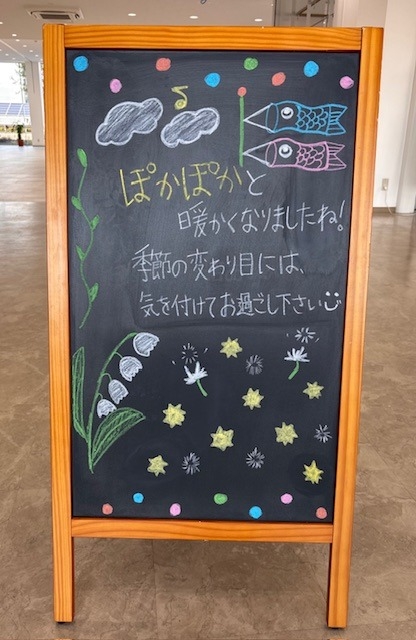 ぽかぽかと
暖かくなりましたね!
季節の変わり目には、
気を付けてお過ごし下さい